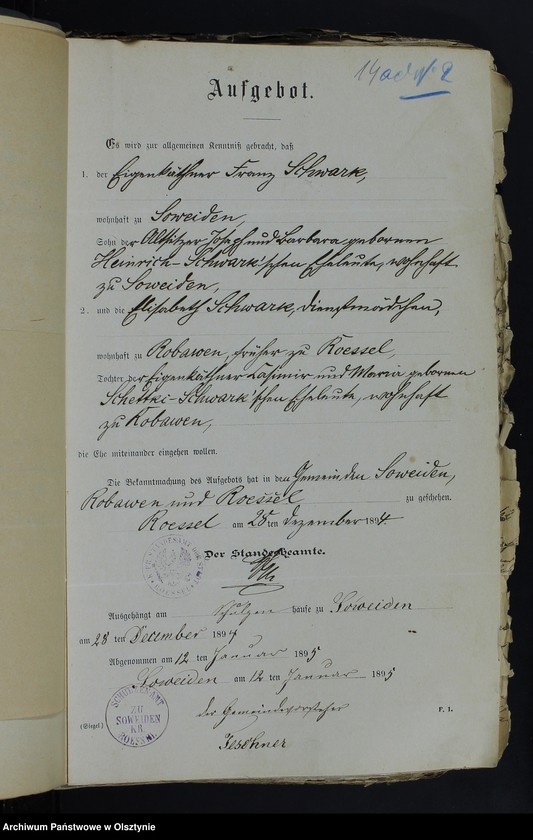 14 ad N: 2
Aufgebot.
Es wird zur allgemeinen Kenntniß gebracht, daß
1. der Eigenkäthner Franz Schwark,
wohnhaft zu Soweiden,
Sohn der Altsitzer Joseph und Barbara gebornen
Heinrich-Schwark'schen Eheleute, wohnhaft
zu Soweiden,
2. und die Elisabeth Schwark, Dienstmädchen,
wohnhaft zu Robawen, früher zu Roessel,
Tochter der Eigenkäthner Casimir und Maria gebornen
Schettki-Schwark'schen Eheleute, wohnhaft
zu Robawen,
die Ehe miteinander eingehen wollen.
Die Bekanntmachung des Aufgebots hat in den Gemeinden Soweiden,
Robawen und Roessel zu geschehen.
Roessel am 28 ten Dezember 1894
Der Standesbeamte.
Ausgehängt am Schulzen hause zu Soweiden
am 28 ten December 1894
Abgenommen am 12 ten Januar 1895
Soweiden am 12 ten Januar 1895
(Siegel.)
SCHULZENAMT
ZU
SOWEIDEN
KR.
ROESSEL
der Gemeindevorsteher
F. 1.
Jeschner
Archiwum Państwowe w Olsztynie